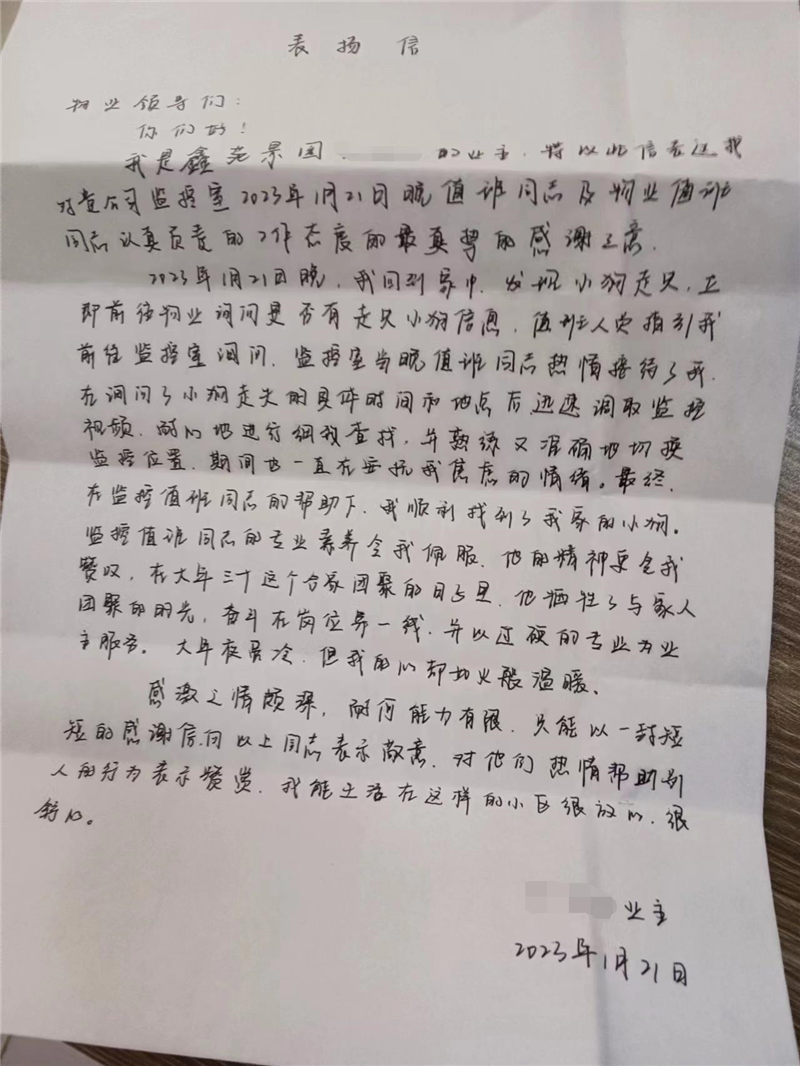 表扬信
物业领导们：
你们好！
我是鑫尧景园 的业主，特以此信表达我
对贵公司监控室2023年1月21日晚值班同志及物业值班
同志认真负责的工作态度的最真挚的感谢之意。
2023年1月21日晚，我回到家中，发现小狗走失，立
即前往物业询问是否有走失小狗信息，值班人员指引我
前往监控室询问，监控室当晚值班同志热情接待了我，
在询问了小狗走失的具体时间和地点后迅速调取监控
视频，耐心地进行细致查找，并熟练又准确地切换
监控位置，期间也一直在安抚我焦虑的情绪。最终，
在监控值班同志的帮助下，我顺利找到了我家的小狗。
监控值班同志的专业素养令我佩服，他的精神更令我
赞叹，在大年三十这个合家团聚的日子里，他牺牲了与家人
团聚的时光，奋斗在岗位第一线，并以过硬的专业为业
主服务。大年夜虽冷，但我的心却如火般温暖。
感激之情颇深，耐何能力有限，只能以一封短
短的感谢信向以上同志表示敬意，对他们热情帮助别
人的行为表示赞赏，我能生活在这样的小区很放心、很
舒心。
业主
2023年1月21日